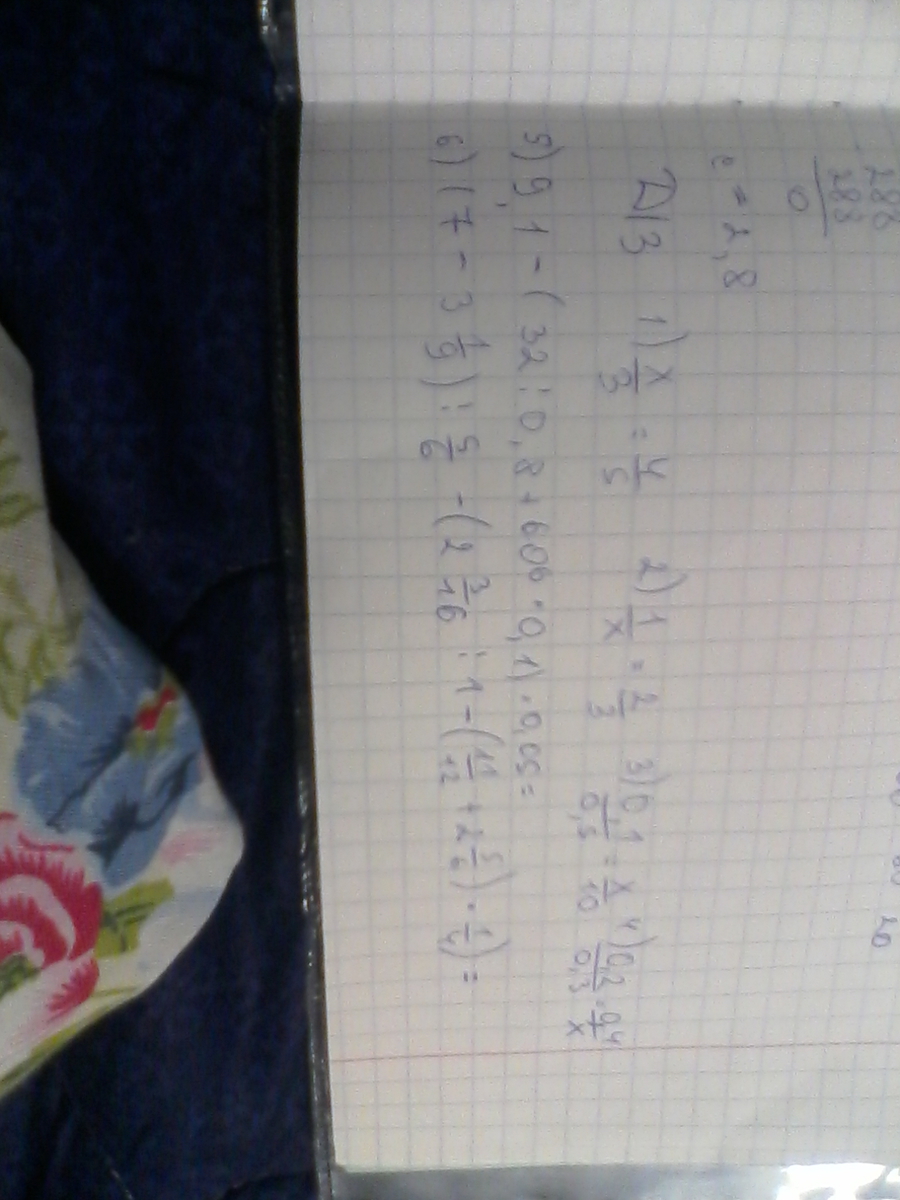 286
288
0
c = 2,8
Д/З 1) x/3 = 4/5 2) 1/x = 2/3 3) 0,1/0,5 = x/10 4) 0,2/0,3 = 0,4/x
5) 9,1 - (32 : 0,8 + 606 · 0,1) · 0,05 =
6) (7 - 3 1/9) : 5/6 - (2 3/16 : 1 - (11/12 + 2 5/6) · 1/4) =